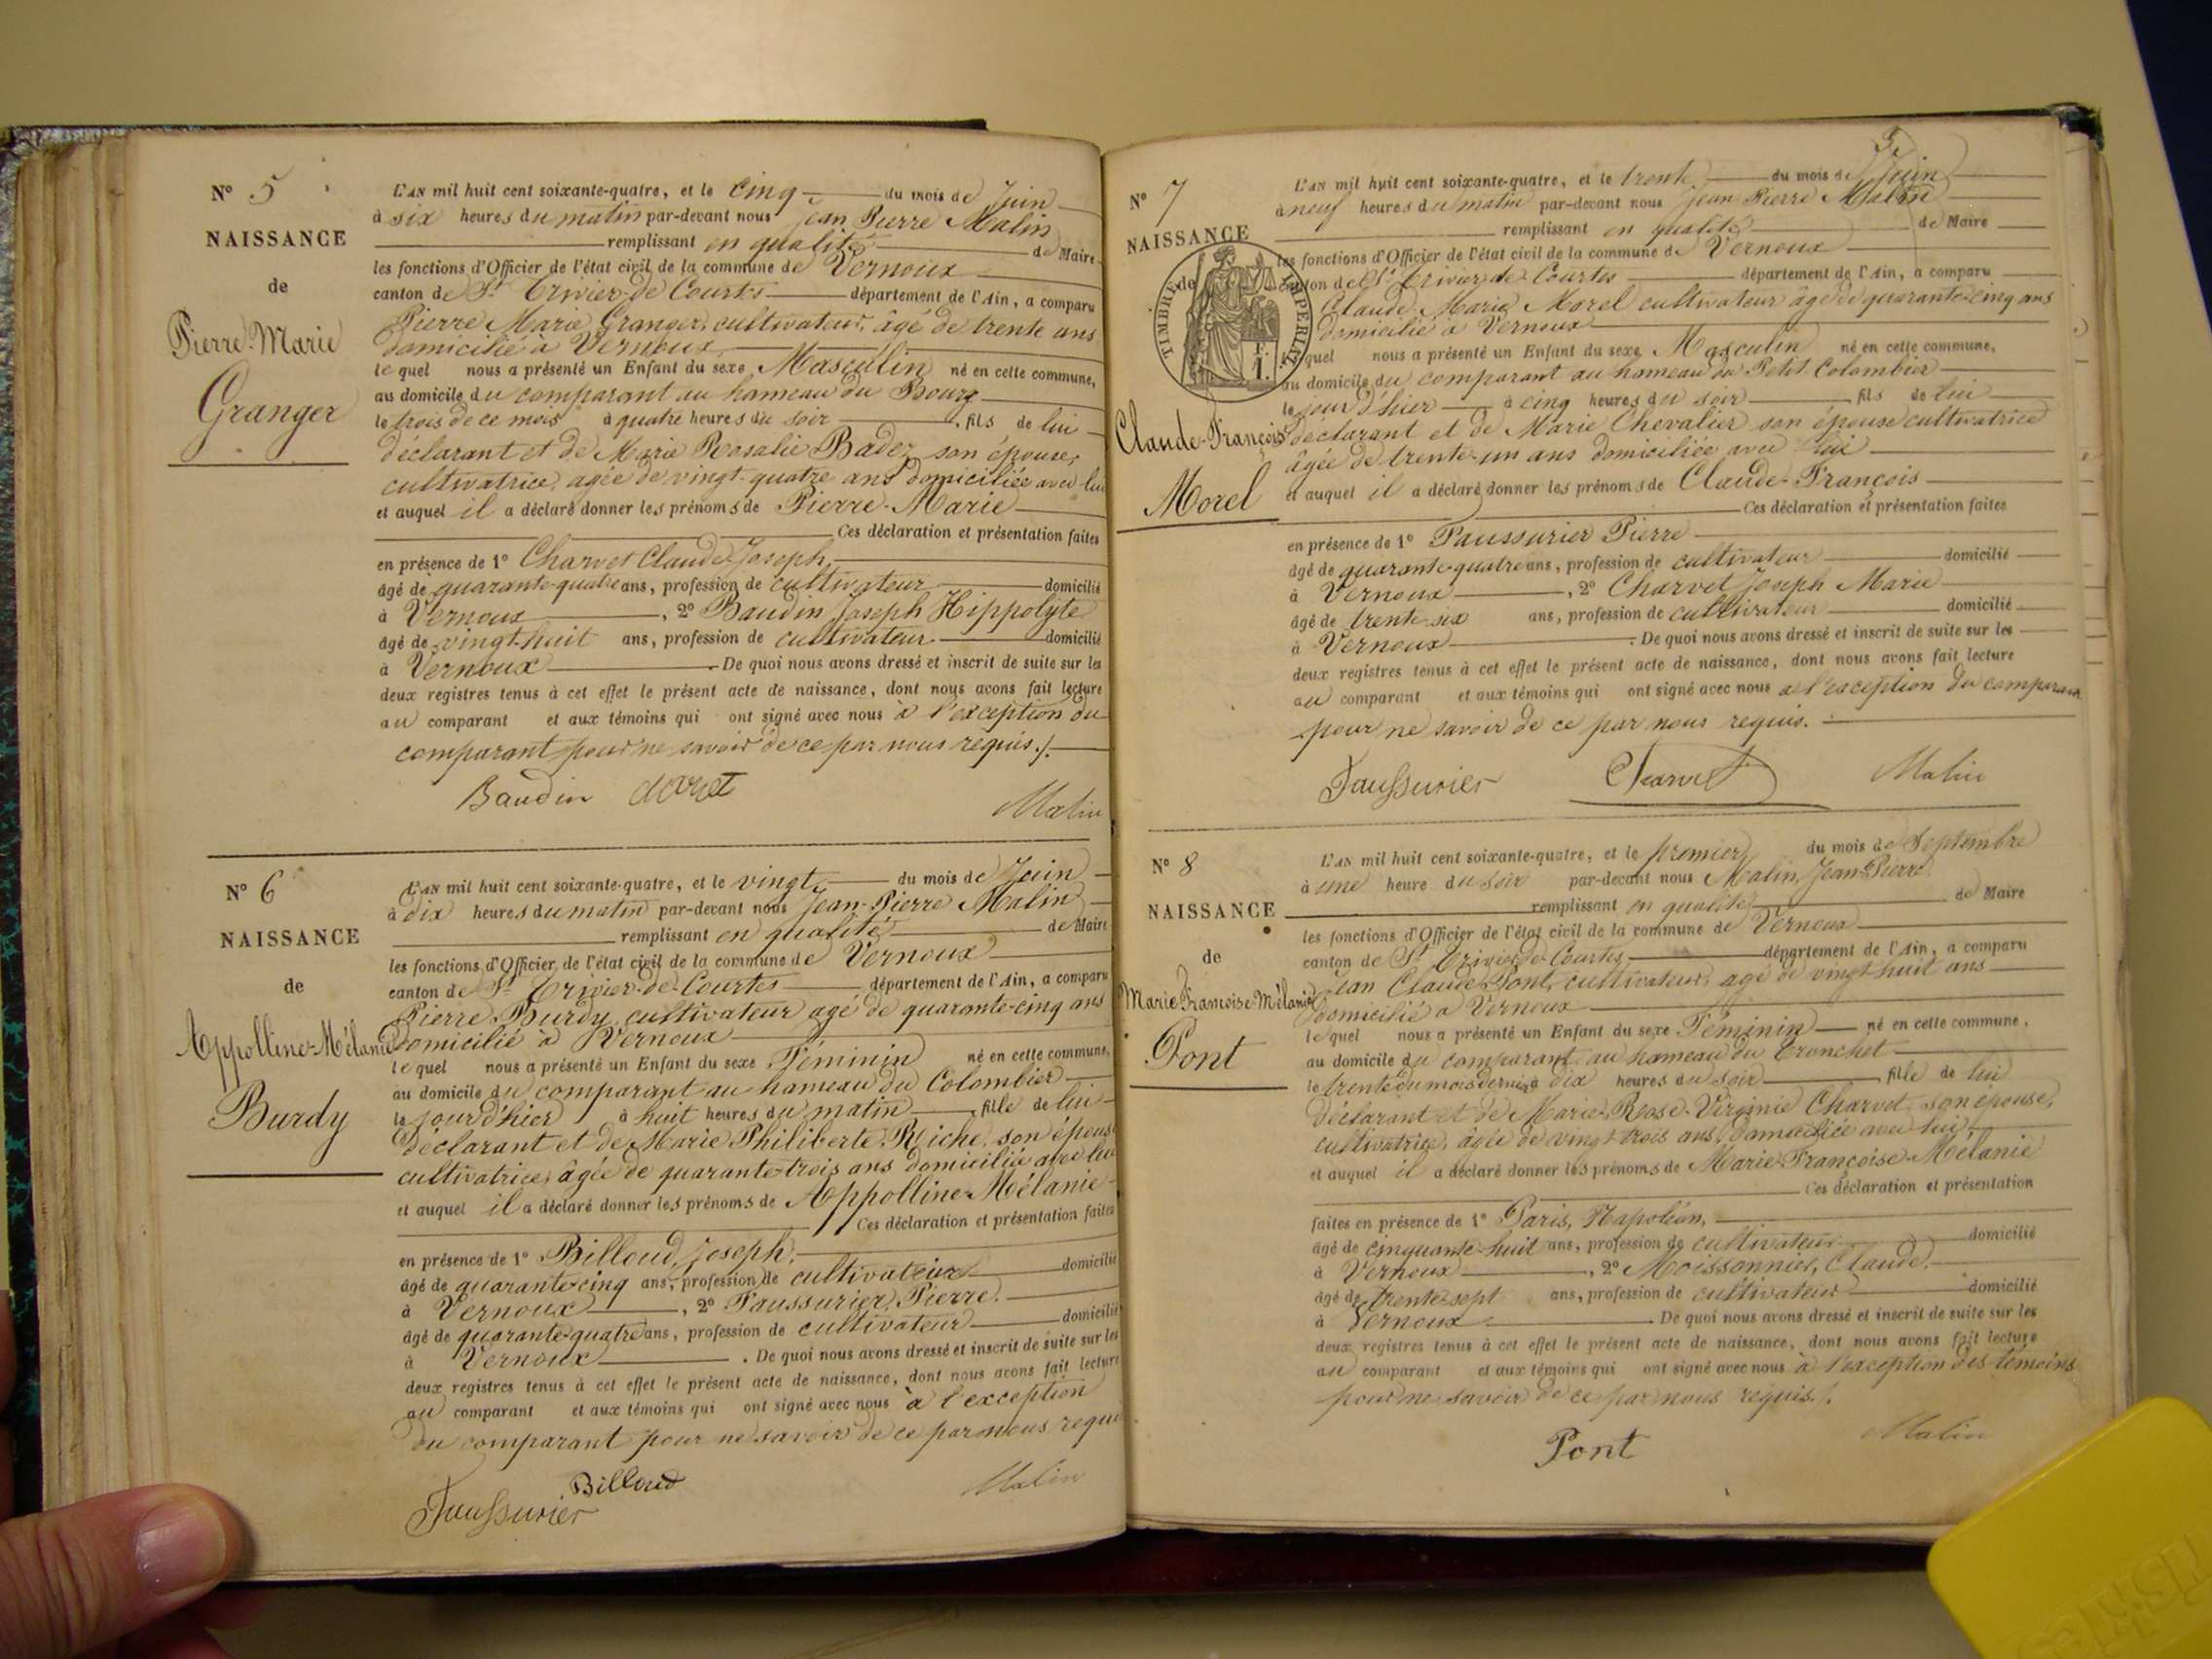 N° 5
NAISSANCE
de
Pierre-Marie
Granger
L'AN mil huit cent soixante-quatre, et le cinq du mois de Juin
à six heures du matin par-devant nous Jean Pierre Malin
remplissant en qualité de Maire
les fonctions d'Officier de l'état civil de la commune de Vernoux
canton de St Trivier-de-Courtes département de l'Ain, a comparu
Pierre Marie Granger, cultivateur, âgé de trente ans
domicilié à Vernoux
lequel nous a présenté un Enfant du sexe Masculin né en cette commune,
au domicile du comparant au hameau du Bourg
le trois de ce mois à quatre heures du soir, fils de lui
déclarant et de Marie Rosalie Bader son épouse,
cultivatrice, agée de vingt-quatre ans domiciliée avec lui
et auquel il a déclaré donner les prénoms de Pierre-Marie
Ces déclaration et présentation faites
en présence de 1° Charvet Claude Joseph
âgé de quarante-quatre ans, profession de cultivateur domicilié
à Vernoux, 2° Baudin Joseph Hippolyte
âgé de vingt-huit ans, profession de cultivateur domicilié
à Vernoux. De quoi nous avons dressé et inscrit de suite sur les
deux registres tenus à cet effet le présent acte de naissance, dont nous avons fait lecture
au comparant et aux témoins qui ont signé avec nous à l'exception du
comparant pour ne savoir de ce par nous requis./.
Baudin Malin
N° 6
NAISSANCE
de
Appolline-Mélanie
Burdy
L'AN mil huit cent soixante-quatre, et le vingt du mois de Juin
à dix heures du matin par-devant nous Jean-Pierre Malin
remplissant en qualité de Maire
les fonctions d'Officier de l'état civil de la commune de Vernoux
canton de St Trivier-de-Courtes département de l'Ain, a comparu
Pierre Burdy, cultivateur agé de quarante-cinq ans
domicilié à Vernoux
lequel nous a présenté un Enfant du sexe Féminin né en cette commune,
au domicile du comparant au hameau du Colombier
le jour d'hier à huit heures du matin, fille de lui
déclarant et de Marie Philiberte Riche, son épouse
cultivatrice, âgée de quarante-trois ans domiciliée avec lui
et auquel il a déclaré donner les prénoms de Appolline-Mélanie
Ces déclaration et présentation faites
en présence de 1° Billoud, Joseph,
âgé de quarante-cinq ans, profession de cultivateur domicilié
à Vernoux, 2° Faussurier, Pierre,
âgé de quarante-quatre ans, profession de cultivateur domicilié
à Vernoux. De quoi nous avons dressé et inscrit de suite sur les
deux registres tenus à cet effet le présent acte de naissance, dont nous avons fait lecture
au comparant et aux témoins qui ont signé avec nous à l'exception
du comparant pour ne savoir de ce par nous requis
Billoud Malin
Faussurier
3
N° 7
NAISSANCE
de
TIMBRE IMPERIAL
1 F.
Claude-François
Morel
L'AN mil huit cent soixante-quatre, et le trente du mois de Juin
à neuf heures du matin par-devant nous Jean Pierre Malin
remplissant en qualité de Maire
les fonctions d'Officier de l'état civil de la commune de Vernoux
canton de St Trivier de Courtes département de l'Ain, a comparu
Claude Marie Morel cultivateur âgé de quarante-cinq ans
domicilié à Vernoux
lequel nous a présenté un Enfant du sexe Masculin né en cette commune,
au domicile du comparant au hameau du Petit Colombier
le jour d'hier à cinq heures du soir, fils de lui
déclarant et de Marie Chevalier son épouse cultivatrice
âgée de trente-un ans domiciliée avec lui
et auquel il a déclaré donner les prénoms de Claude-François
Ces déclaration et présentation faites
en présence de 1° Faussurier Pierre
âgé de quarante-quatre ans, profession de cultivateur domicilié
à Vernoux, 2° Charvet Joseph Marie
âgé de trente-six ans, profession de cultivateur domicilié
à Vernoux. De quoi nous avons dressé et inscrit de suite sur les
deux registres tenus à cet effet le présent acte de naissance, dont nous avons fait lecture
au comparant et aux témoins qui ont signé avec nous à l'exception du comparant
pour ne savoir de ce par nous requis.
Faussurier Charvet Malin
N° 8
NAISSANCE
de
Marie-Francoise-Mélanie
Pont
L'AN mil huit cent soixante-quatre, et le premier du mois de Septembre
à une heure du soir par-devant nous Malin, Jean-Pierre
remplissant en qualité de Maire
les fonctions d'Officier de l'état civil de la commune de Vernoux
canton de St Trivier-de-Courtes département de l'Ain, a comparu
Jean Claude Pont, cultivateur, agé de vingt-huit ans
domicilié à Vernoux
lequel nous a présenté un Enfant du sexe Féminin né en cette commune,
au domicile du comparant au hameau du Tronchet
le trente du mois dernier à dix heures du soir, fille de lui
déclarant et de Marie-Rose-Virginie Charvet, son épouse,
cultivatrice, âgée de vingt-trois ans domiciliée avec lui
et auquel il a déclaré donner les prénoms de Marie-Françoise-Mélanie
Ces déclaration et présentation
faites en présence de 1° Paris, Napoléon,
âgé de cinquante-huit ans, profession de cultivateur domicilié
à Vernoux, 2° Moissonnier, Claude,
âgé de trente-sept ans, profession de cultivateur domicilié
à Vernoux. De quoi nous avons dressé et inscrit de suite sur les
deux registres tenus à cet effet le présent acte de naissance, dont nous avons fait lecture
au comparant et aux témoins qui ont signé avec nous à l'exception des témoins
pour ne savoir de ce par nous requis./.
Pont Malin